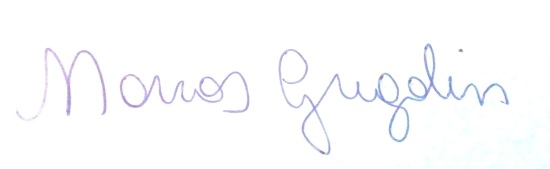 Marcos Grigolin